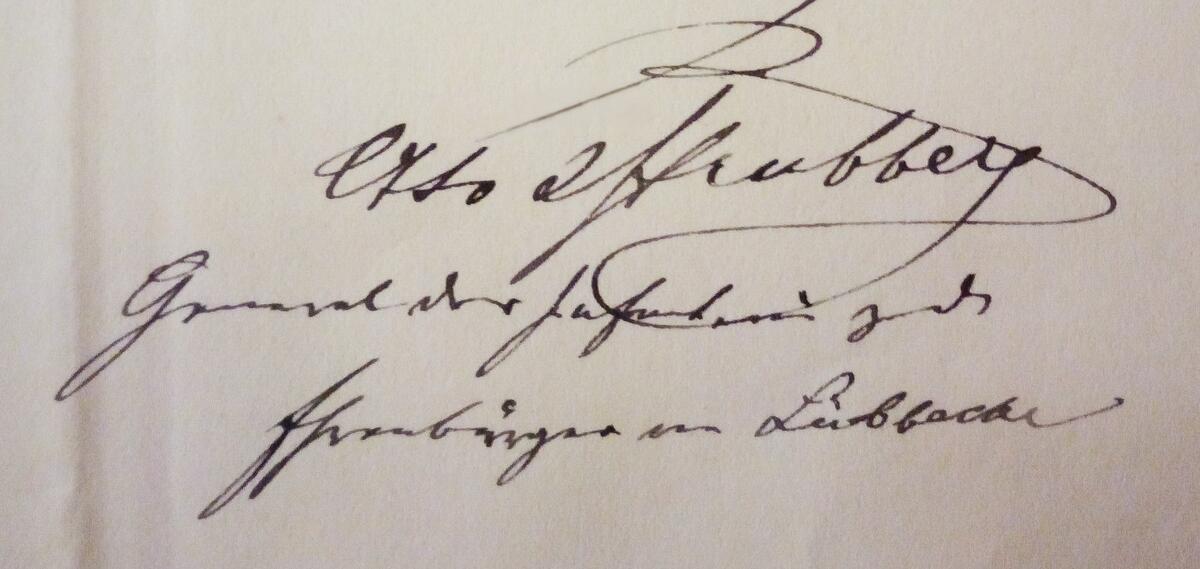 Otto v Strubberg
General der Infanterie z. D.
Ehrenbürger von Lübbecke